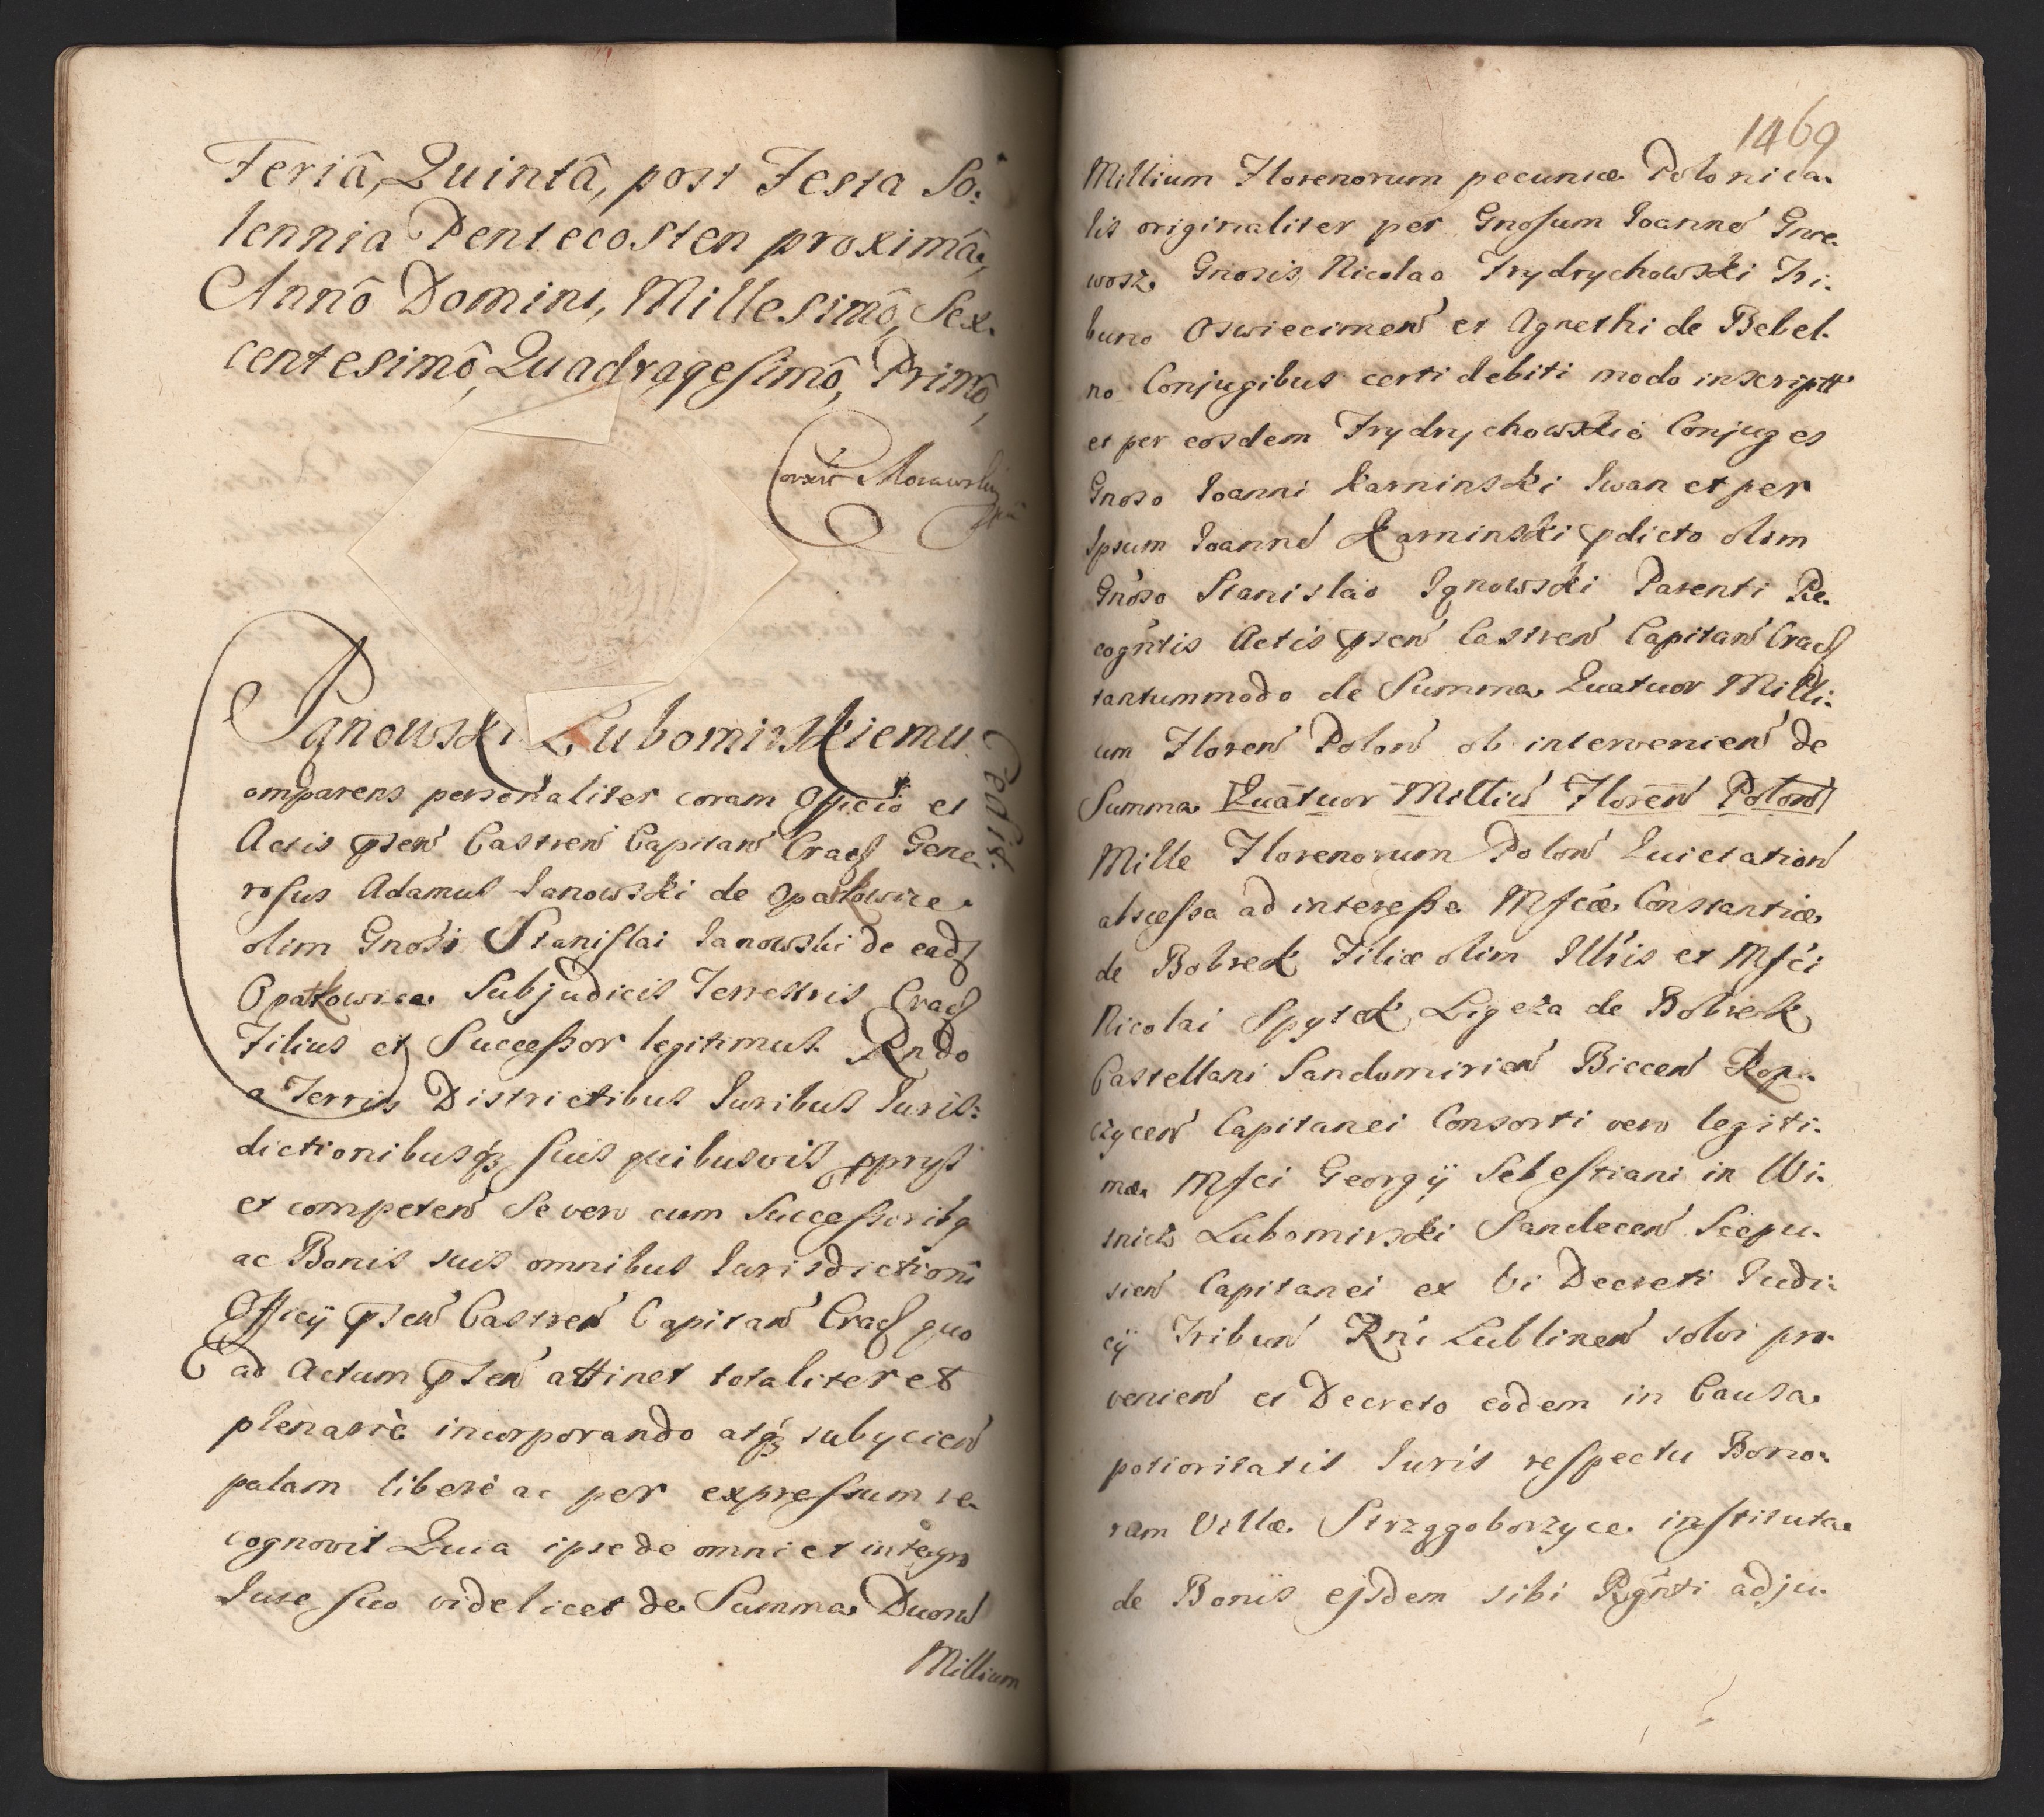 Feriâ, Quintâ, post Festa So:
lennia Pentecosten proximâ,
Annô Domini, Millesimô, Sex.
centesimô, Quadragesimô, Primô,
Janowski Lubomirskiemu
Cessit
omparens personaliter coram Officio et
Actis pñseñ Castreñ Capitañ Cracȩ Gene.
rosus Adamus Janowski de Opatkowice
olim Gnosi Stanislai Janowski de eadȩ
Opatkowice Subjudicis Terrestris Cracȩ
Filius et Successor legitimus Rñdo
a Terris Districtibus Iuribus Iuris:
dictionibusqȝ suis quibusvis pprys
et competeñ Se vero cum Successoribȝ
ac Bonis suis omnibus Iurisdictioni
Officÿ pñseñ Castreñ Capitañ Cracȩ quo
ad Actum pñseñ attinet totaliter et
plenariè incorporando atqȝ subycieñ
palam liberè ac per expressum re.
cognovit Quia ipse de omni et integro
Iure suo videlicet de Summa Duorũ
Millium
1469
Millium Florenorum pecuniæ Polonica.
lis originaliter per Gnosum Joannẽ Gnie.
wosz Gnosis Nicolao Frydrychowski Tri.
buno Oswiecimeñ et Agnethi de Bebel.
no Conjugibus certi debiti modo inscriptt
et per eosdem Frydrychowskie Conjuges
Gnoso Joanni Karninski Iwan et per
Ipsum Joannẽ Karninski pdicto olim
Gnoso Stanislao Ignowski Parenti Re.
cogñtis Actis pñseñ Castreñ Capitañ Cracȩ
tantummodo de Summa Quatuor Milli.
um Floreñ Poloñ ob intervenieñ de
Summa Quatuor Milliũ Floreñ Poloñ
Mille Florenorum Poloñ Quietatioñ
abscessa ad interesse Mfcæ Constantiæ
de Bobrek Filiæ olim Illris et Mfci
Nicolai Spytek Ligeza de Bobrek
Castellani Sandomirieñ Bieceñ Rop.
czyceñ Capitanei Consorti vero legiti.
mæ Mfci Georgÿ Sebestiani in Wi.
snicz Lubomirski Sandeceñ Scepu.
sieñ Capitanei ex Vi Decreti Judi:
cÿ Tribuñ Rñi Lublineñ solvi pro.
venieñ et Decreto eodem in Causa
potioritatis Iuris respectu Bono.
ram Villæ Strzggoborzyce instituta
de Bonis ejsdem sibi Rgñti adju.